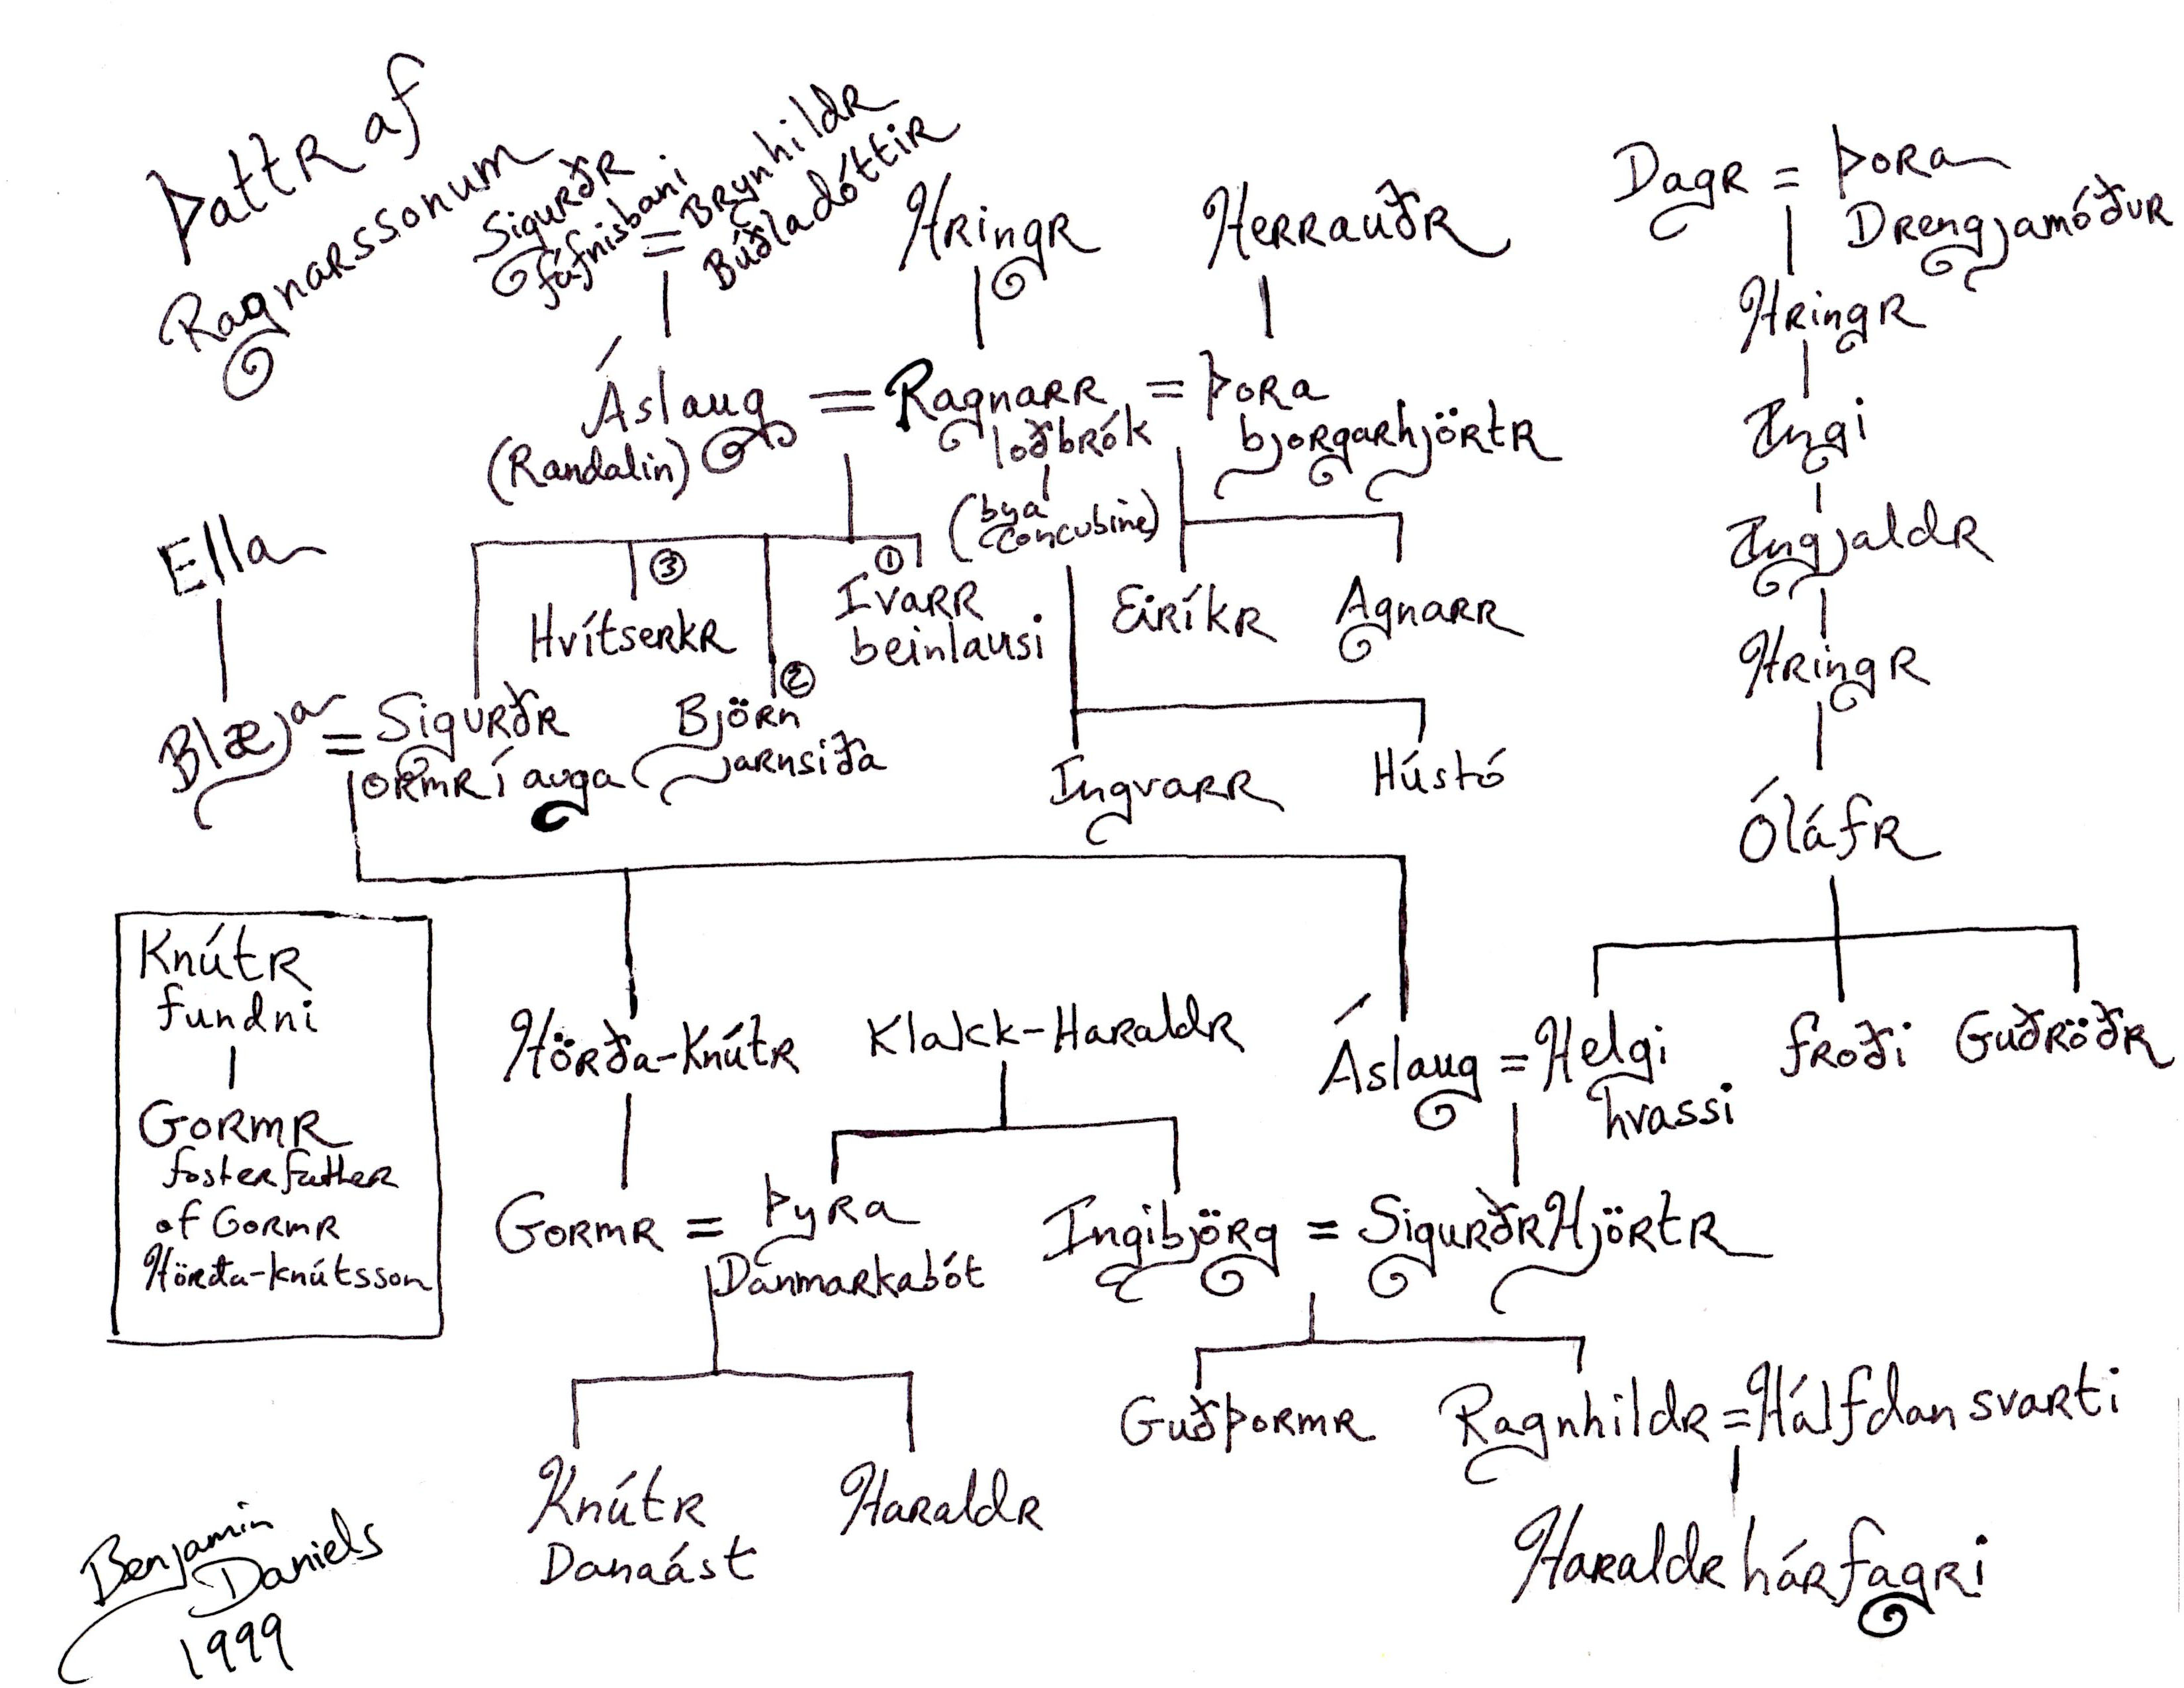 Þattr af
Ragnarssonum
Sigurðr
fáfnisbani
=
Brynhildr
Búðladóttir
Hringr
Herrauðr
Dagr = Þora
Drengjamóður
Hringr
Ingi
Ingjaldr
Hringr
Óláfr
Áslaug = Ragnarr = Þora
(Randalin)
loðbrók
bjorgarhjörtr
(by a
concubine)
Ella
③
①
Hvítserkr
Ivarr
beinlausi
Eiríkr
Agnarr
②
Blæja = Sigurðr
ormr í auga
Björn
jarnsiða
Ingvarr
Hústó
Knútr
fundni
Gormr
foster father
of Gormr
Hörða-knútsson
Hörða-Knútr
Klakk-Haraldr
Áslaug = Helgi
hvassi
froði
Guðröðr
Gormr = Þyra
Danmarkabót
Ingibjörg = Sigurðr Hjörtr
Guðþormr
Ragnhildr = Hálfdan svarti
Knútr
Danaást
Haraldr
Haraldr hárfagri
Benjamin
Daniels
1999